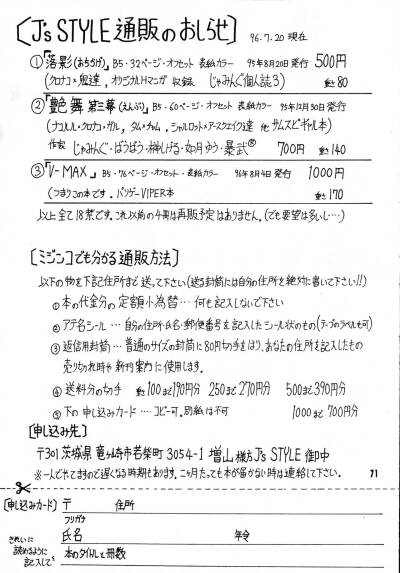 〔J's STYLE 通販のおしらせ〕 96.7.20 現在
①「落影(おちかげ)」B5・32ページ・オフセット 表紙カラー 95年8月20日発行 500円
(クロナコ×鬼達, オリジナルHマンガ 収録 じゃみんぐ個人誌3) 重さ80
②「艶舞 第三幕(えんぶ)」B5・60ページ・オフセット 表紙カラー 95年12月30日発行
(ナコルル・クロナコ・ガル, タム×チャム, シャルロット×アースクェイク達 他 サムスピギャル本)
作家 じゃみんぐ・ばうばう・榊しげる・如月ゆう・暴武® 700円 重さ140
③「V-MAX」B5・76ページ・オフセット・表紙カラー 96年8月4日発行 1000円
(つまりこの本です. バツゲーVIPER本) 重さ170
以上全て18禁です。これ以前の本は再販予定はありません。(でも要望は多いし…)
〔ミジンコでも分かる通販方法〕
以下の物を下記住所まで送って下さい(送る封筒には自分の住所を絶対に書いて下さい!!)
① 本の代金分の定額小為替… 何も記入しないで下さい
② アテ名シール … 自分の住所・氏名・郵便番号を記入したシール状のもの(テープのラベルも可)
③ 返信用封筒… 普通のサイズの封筒に80円切手をはり、あなたの住所を記入したもの
売り切れ時や新刊案内に使用します。
④ 送料分の切手 重さ100まで190円分 250まで270円分 500まで390円分
⑤ 下の申し込みカード… コピー可。別紙は不可 1000まで700円分
〔申し込み先〕
〒301 茨城県 竜ヶ崎市若柴町3054-1 増山様方J's STYLE 御中
※一人でやってますので遅くなる時期もあります。二ヶ月たっても本が届かない時は連絡して下さい。 71
〔申し込みカード〕 〒 住所
フリガナ
氏名 年令
きれいに
読めるように
記入してね
本のタイトルと冊数